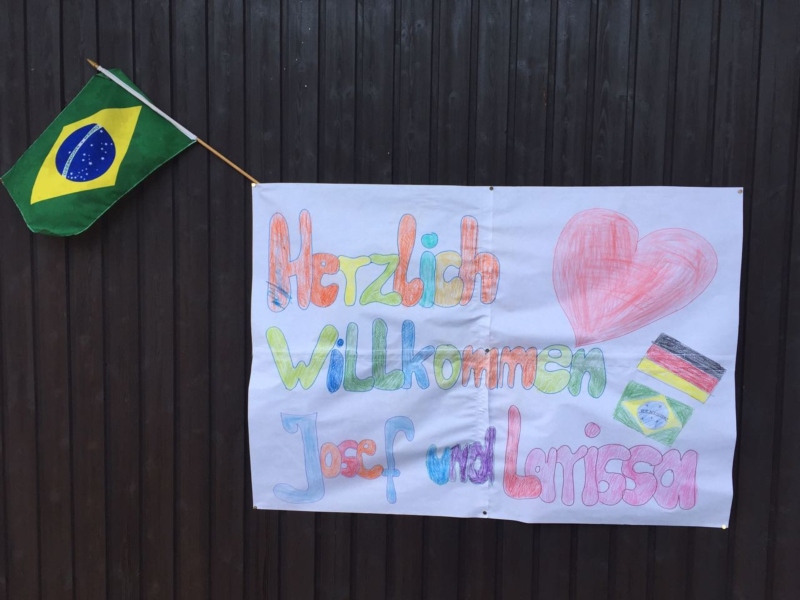 Herzlich
Willkommen
Josef und Larissa